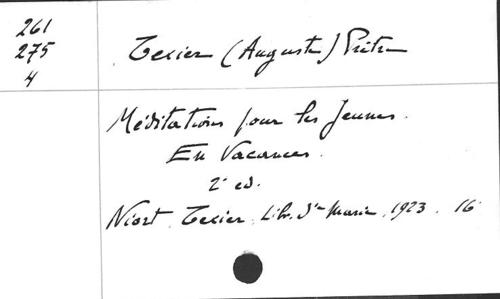 261
275
4
Texier (Auguste) Prêtre
Méditations pour les Jeunes.
En Vacances.
2e ed.
Niort. Texier. Libr. Ste Marie. 1923. 16